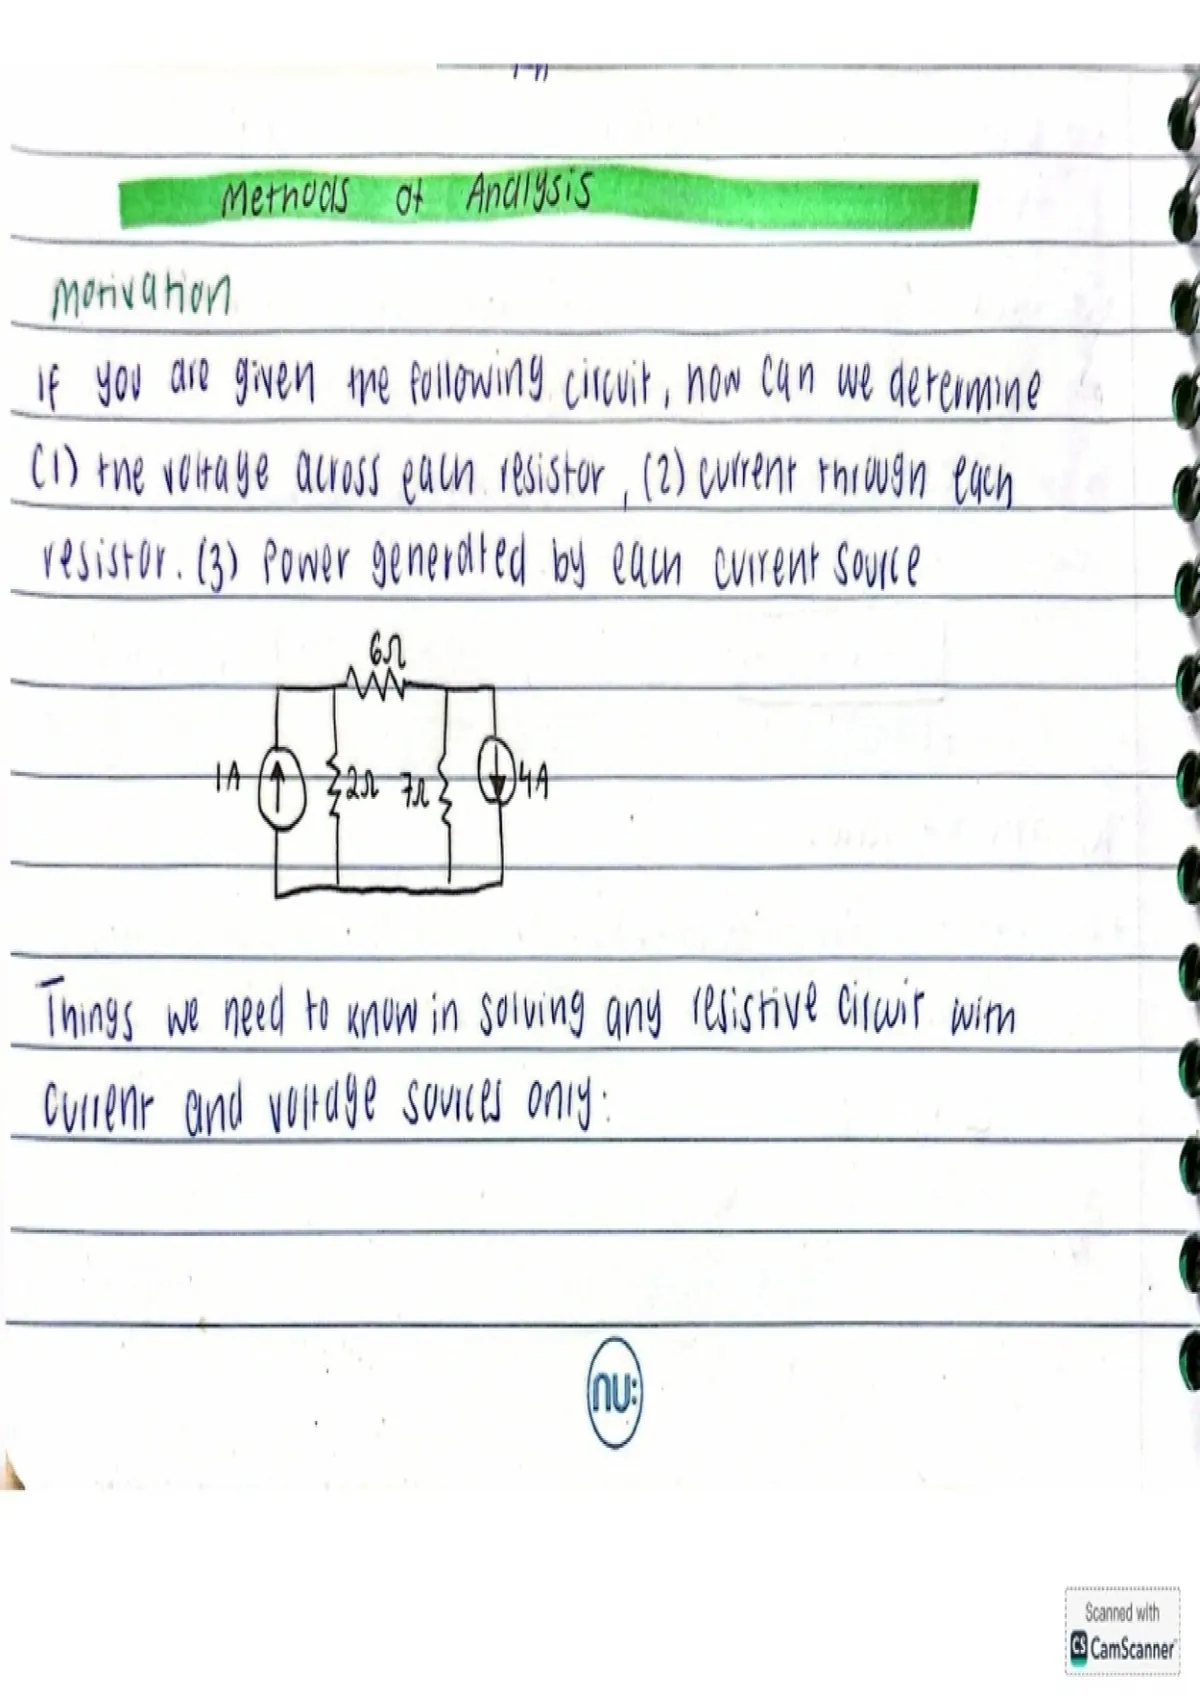 Methods of Analysis
Motivation
If you are given the following circuit, how can we determine
(1) the voltage across each resistor, (2) current through each
resistor. (3) Power generated by each current source
6Ω
1A
2Ω
7Ω
4A
Things we need to know in solving any resistive circuit with
current and voltage sources only:
nu:
Scanned with
CS CamScanner